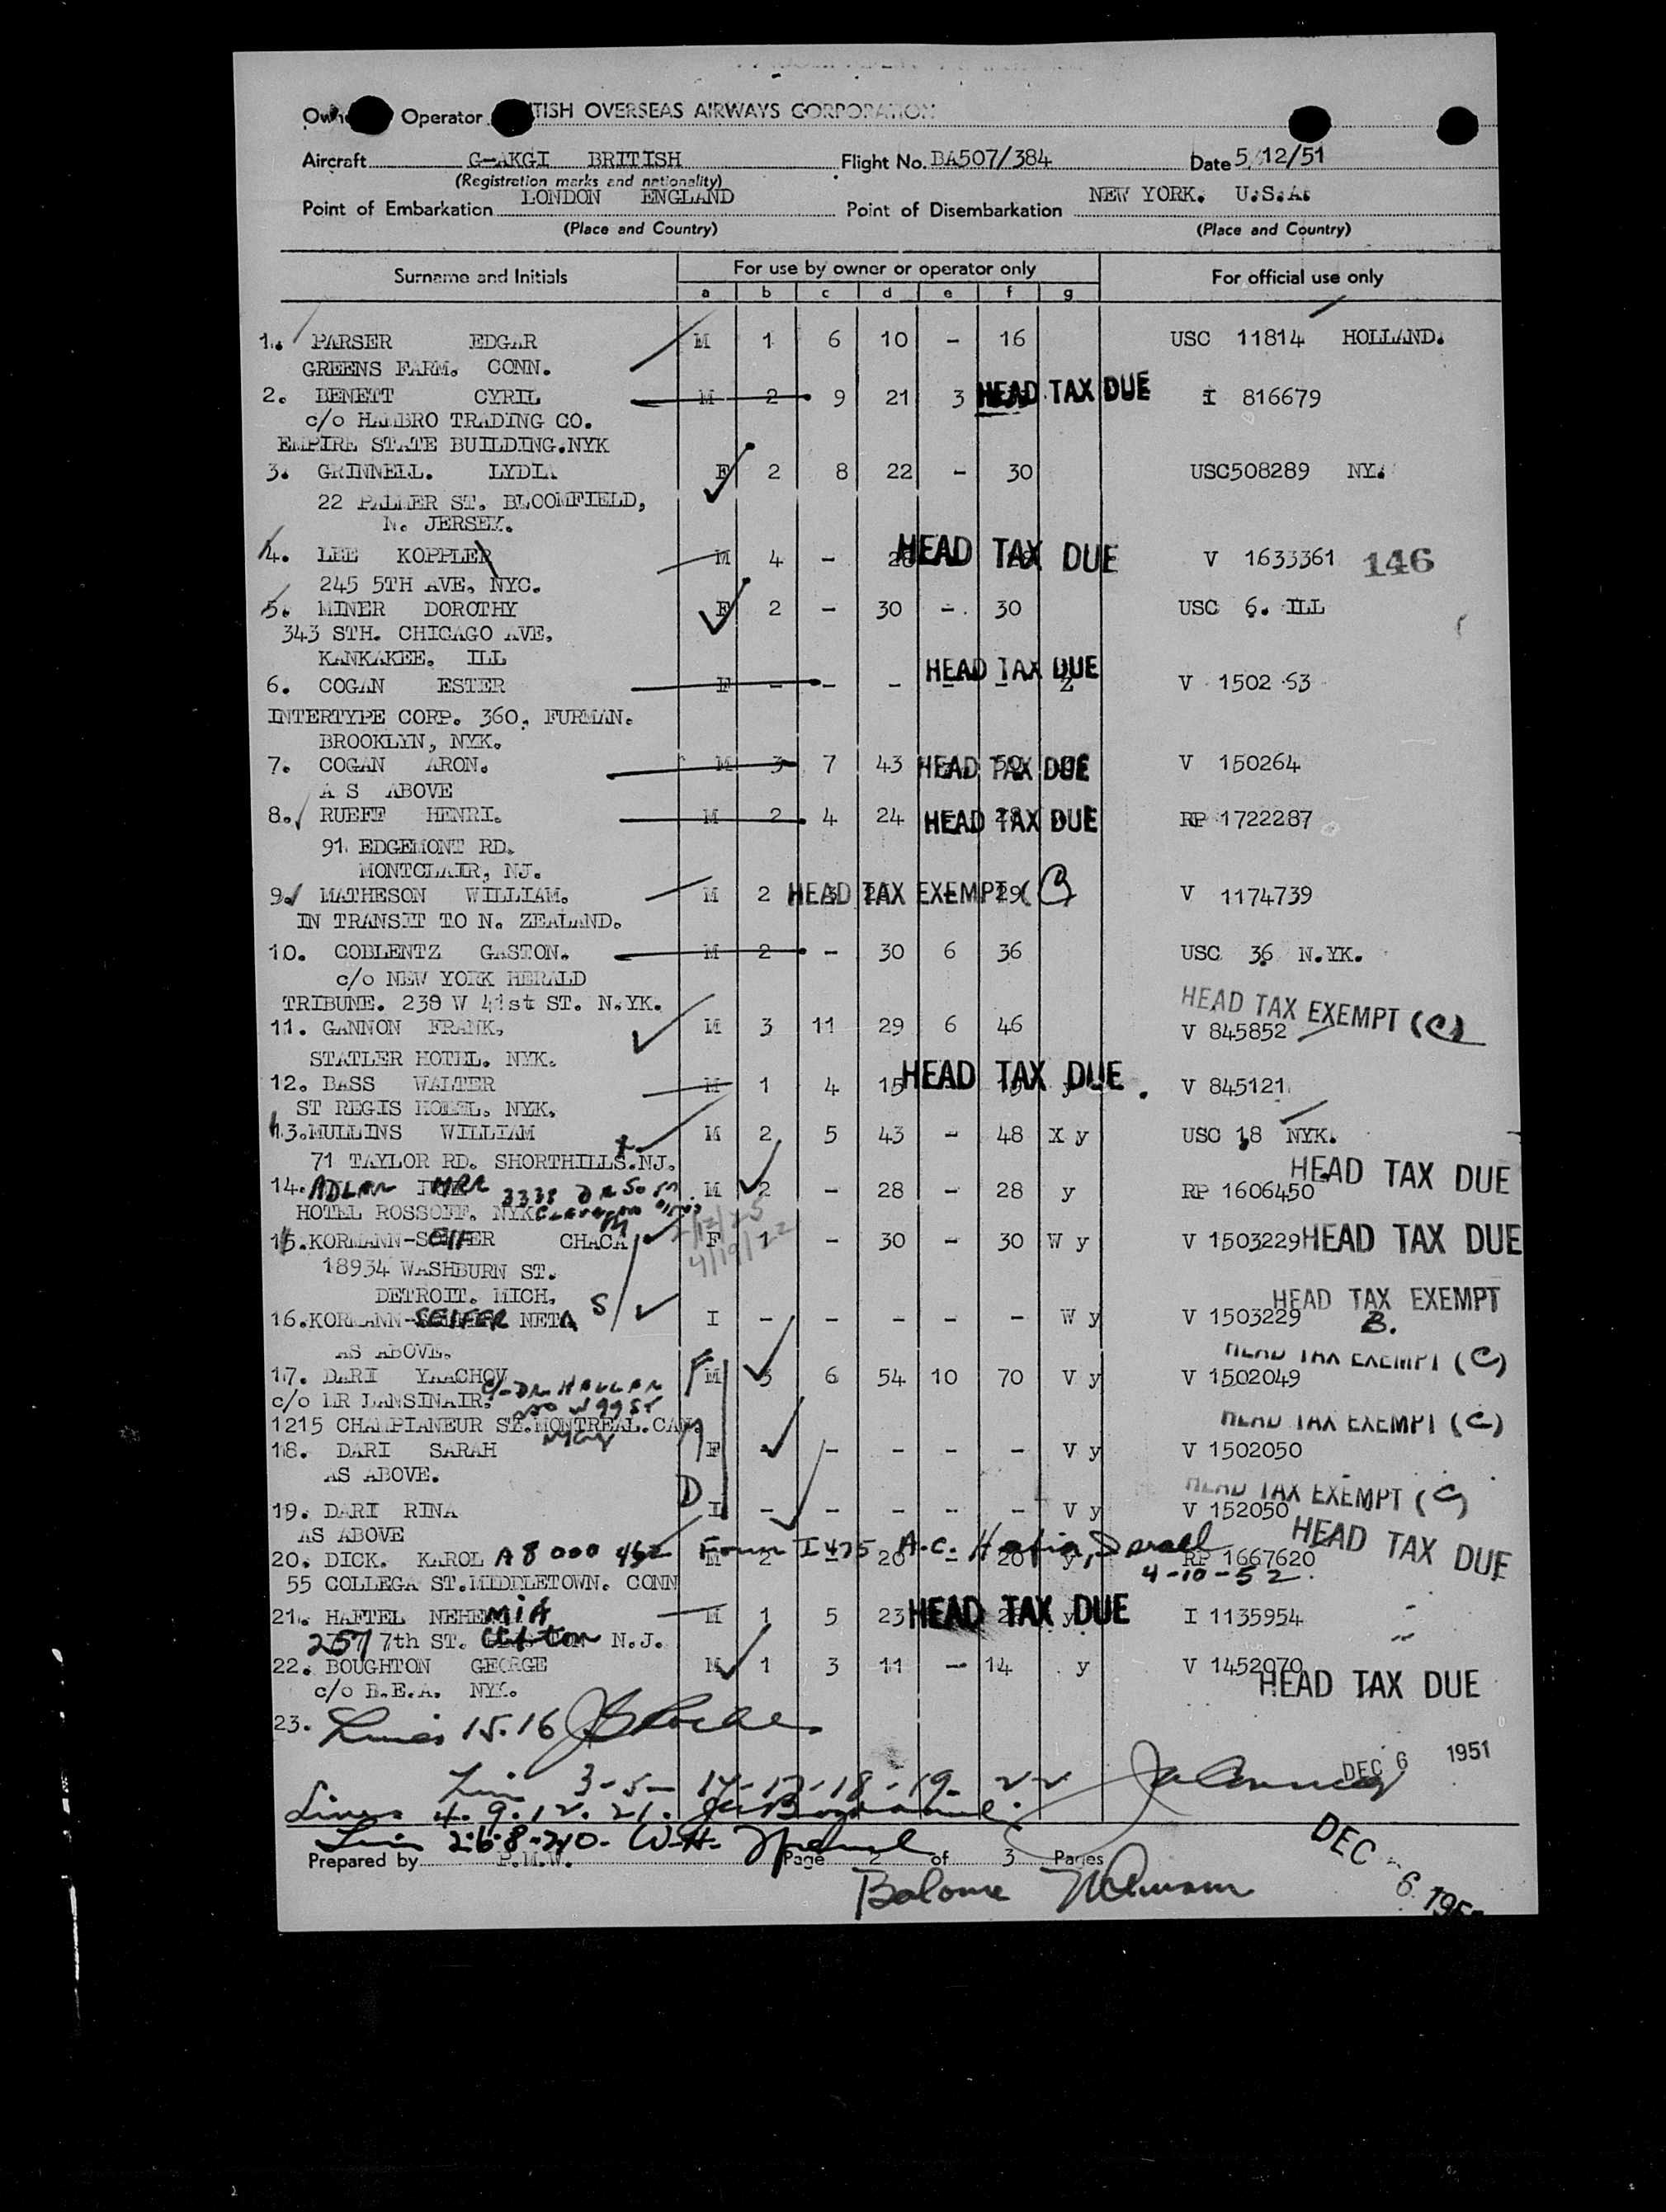 Operator TISH OVERSEAS AIRWAYS CORPORATION
Aircraft G-AKGI BRITISH Flight No. BA507/384 Date 5/12/51
(Registration marks and nationality)
Point of Embarkation LONDON ENGLAND Point of Disembarkation NEW YORK. U.S.A.
(Place and Country) (Place and Country)
Surname and Initials For use by owner or operator only For official use only
a b c d e f g
1. PARSER EDGAR M 1 6 10 - 16 USC 11814 HOLLAND.
GREENS FARM. CONN.
2. BENETT CYRIL M 2 9 21 3 HEAD TAX DUE I 816679
c/o HAMBRO TRADING CO.
EMPIRE STATE BUILDING.NYK
3. GRINNELL. LYDIA F 2 8 22 - 30 USC508289 NY.
22 PALMER ST. BLOOMFIELD,
N. JERSEY.
4. LEE KOPPLER M 4 - 28 HEAD TAX DUE V 1633361 146
245 5TH AVE, NYC.
5. MINER DOROTHY F 2 - 30 - 30 USC 6. ILL
343 STH. CHICAGO AVE.
KANKAKEE. ILL
6. COGAN ESTER F - - - - - Z HEAD TAX DUE V 1502 53
INTERTYPE CORP. 360, FURMAN.
BROOKLYN, NYK.
7. COGAN ARON. M 3 7 43 50 HEAD TAX DUE V 150264
A S ABOVE
8. RUEFF HENRI. M 2 4 24 - 28 HEAD TAX DUE RP 1722287
91 EDGEMONT RD.
MONTCLAIR, NJ.
9. MATHESON WILLIAM. M 2 3 - 29 HEAD TAX EXEMPT ( V 1174739
IN TRANSIT TO N. ZEALAND.
10. COBLENTZ GASTON. M 2 - 30 6 36 USC 36 N.YK.
c/o NEW YORK HERALD
TRIBUNE. 230 W 41st ST. N.YK.
HEAD TAX EXEMPT (C)
11. GANNON FRANK. M 3 11 29 6 46 V 845852
STATLER HOTEL. NYK.
12. BASS WALTER M 1 4 15 HEAD TAX DUE V 845121
ST REGIS HOTEL. NYK.
13. MULLINS WILLIAM M 2 5 43 - 48 X y USC 18 NYK.
71 TAYLOR RD. SHORTHILLS.NJ.
14. ADLER 3338 M 2 - 28 - 28 y RP 1606450 HEAD TAX DUE
HOTEL ROSSOFF. NYK
2/12/25
4/19/22
15. KORMANN-SEIFER CHACA F 1 - 30 - 30 W y V 1503229 HEAD TAX DUE
18934 WASHBURN ST.
DETROIT. MICH.
16. KORMANN-SEIFER NETA S I - - - - - W y V 1503229 HEAD TAX EXEMPT B.
AS ABOVE.
17. DARI YAACHOV M 3 6 54 10 70 V y V 1502049 HEAD TAX EXEMPT (C)
c/o MR LANSINAIR.
1215 CHAMPLANEUR ST.MONTREAL.CAN.
18. DARI SARAH F - - - - V y V 1502050 HEAD TAX EXEMPT (C)
AS ABOVE.
19. DARI RINA I - - - - - V y V 152050 HEAD TAX EXEMPT (C)
AS ABOVE
20. DICK. KAROL A8 000 462 Form I 475 A.C. Haifa, Israel 4-10-52 M 2 - 20 - 20 y RP 1667620 HEAD TAX DUE
55 COLLEGA ST.MIDDLETOWN. CONN
21. HAFTEL NEHEMIA M 1 5 23 y HEAD TAX DUE I 1135954
257 7th ST. Clifton N.J.
22. BOUGHTON GEORGE M 1 3 11 - 14 y V 1452070
c/o B.E.A. NYK. HEAD TAX DUE
23. Lines 15.16
3-5- 17-18-19- 22 DEC 6 1951
Lines 4. 9. 12. 21.
Prepared by P.M.W. Page 2 of 3 Pages
DEC 6 195